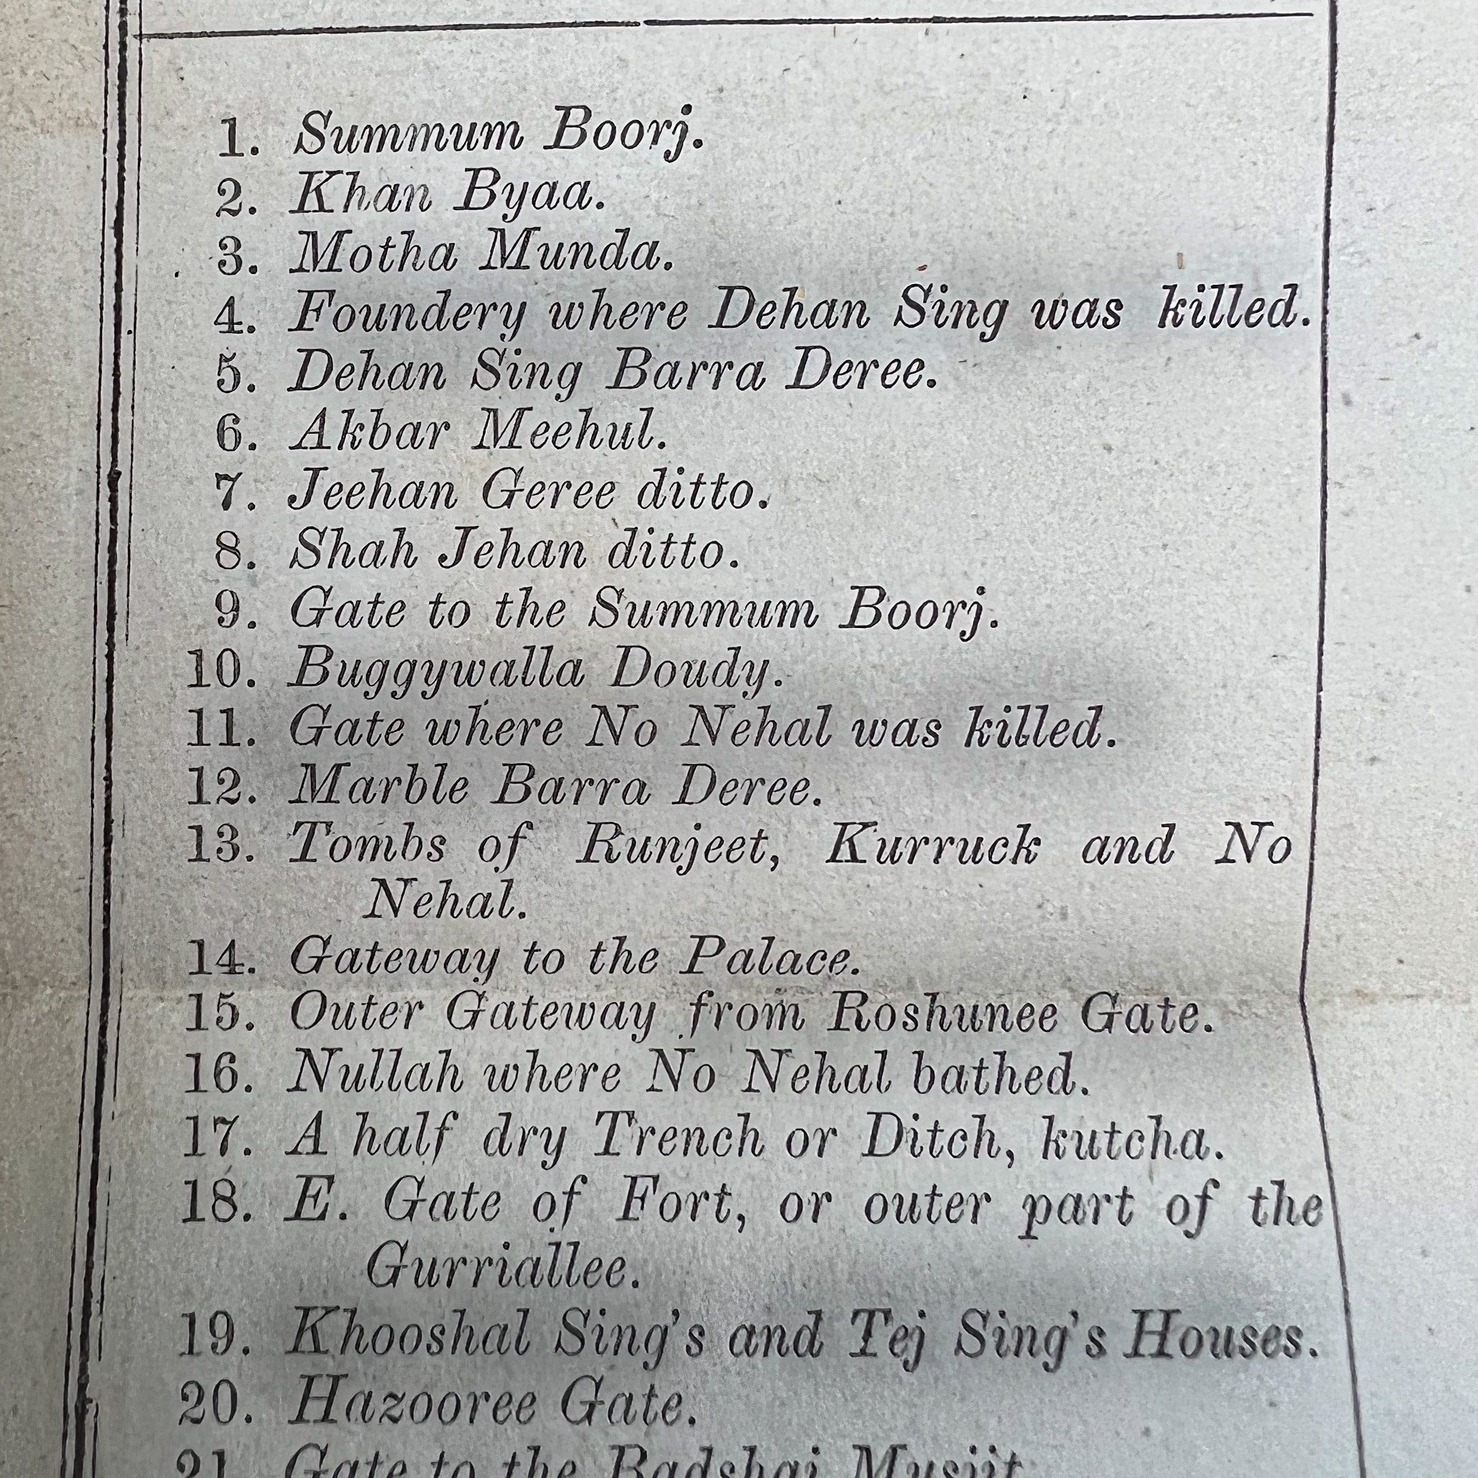 1. Summum Boorj.
2. Khan Byaa.
3. Motha Munda.
4. Foundery where Dehan Sing was killed.
5. Dehan Sing Barra Deree.
6. Akbar Meehul.
7. Jeehan Geree ditto.
8. Shah Jehan ditto.
9. Gate to the Summum Boorj.
10. Buggywalla Doudy.
11. Gate where No Nehal was killed.
12. Marble Barra Deree.
13. Tombs of Runjeet, Kurruck and No
Nehal.
14. Gateway to the Palace.
15. Outer Gateway from Roshunee Gate.
16. Nullah where No Nehal bathed.
17. A half dry Trench or Ditch, kutcha.
18. E. Gate of Fort, or outer part of the
Gurriallee.
19. Khooshal Sing's and Tej Sing's Houses.
20. Hazooree Gate.
21. Gate to the Badshai Musjit